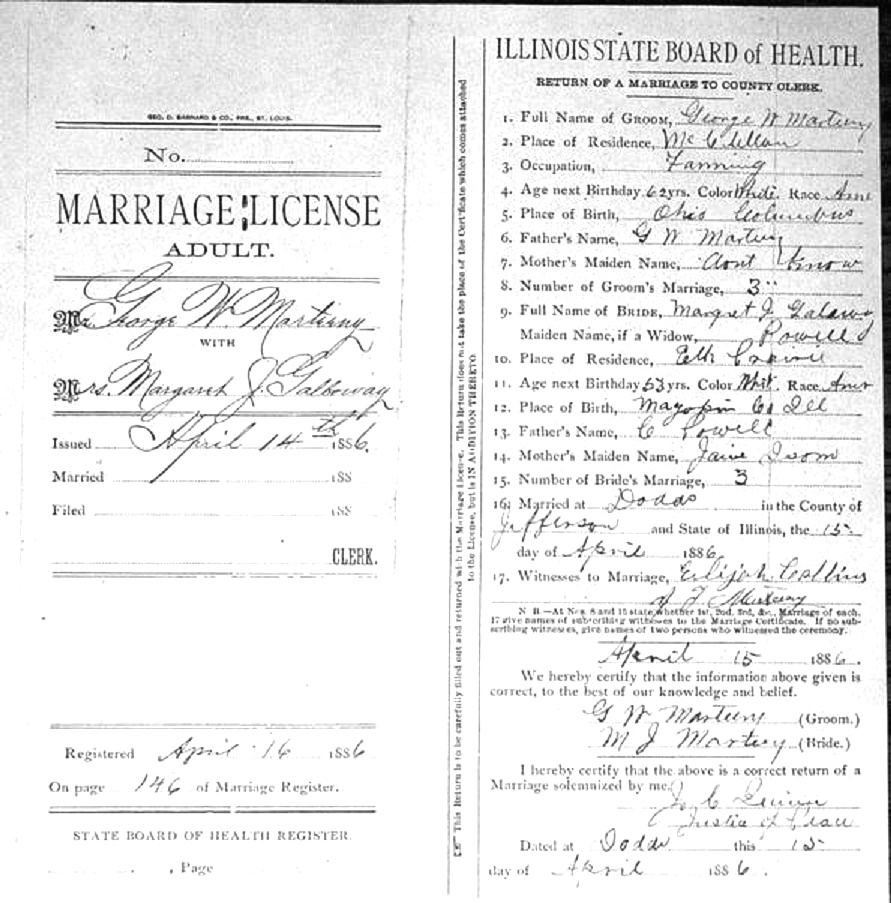 GEO. D. BARNARD & CO., PRS., ST. LOUIS.
No.
MARRIAGE LICENSE
ADULT.
Mr. George W. Marteeny
WITH
Mrs. Margaret J. Galloway
Issued April 14th 1886.
Married 188
Filed 188
CLERK.
Registered April 16 1886
On page 146 of Marriage Register.
STATE BOARD OF HEALTH REGISTER.
, Page
This Return is to be carefully filled out and returned with the Marriage License. This Return does not take the place of the Certificate which comes attached
to the License, but is IN ADDITION THERETO.
ILLINOIS STATE BOARD of HEALTH.
RETURN OF A MARRIAGE TO COUNTY CLERK.
1. Full Name of GROOM, George W Marteeny
2. Place of Residence, Mc Clellan
3. Occupation, Farming
4. Age next Birthday 62 yrs. Color White Race Ame
5. Place of Birth, Ohio Columbus
6. Father's Name, G W Marteeny
7. Mother's Maiden Name, dont know
8. Number of Groom's Marriage, 3"
9. Full Name of BRIDE, Margret J Galaway
Maiden Name, if a Widow, Powell
10. Place of Residence, Elk Prairie
11. Age next Birthday 53 yrs. Color Whit Race Amr
12. Place of Birth, Mayopin Co Ill
13. Father's Name, C Powell
14. Mother's Maiden Name, Jane Isom
15. Number of Bride's Marriage, 3
16. Married at Dodds in the County of
Jefferson and State of Illinois, the 15
day of April 1886
17. Witnesses to Marriage, Erlijah Collins
J Marteeny
N B.—At Nos. 8 and 15 state whether 1st, 2nd, 3rd, &c., Marriage of each.
17 give names of subscribing witnesses to the Marriage Certificate. If no sub-
scribing witnesses, give names of two persons who witnessed the ceremony.
April 15 1886.
We hereby certify that the information above given is
correct, to the best of our knowledge and belief.
G W Marteeny (Groom.)
M J Marteny (Bride.)
I hereby certify that the above is a correct return of a
Marriage solemnized by me.
C Quinn
Justis of Peace
Dated at Dodds this 15
day of April 1886.